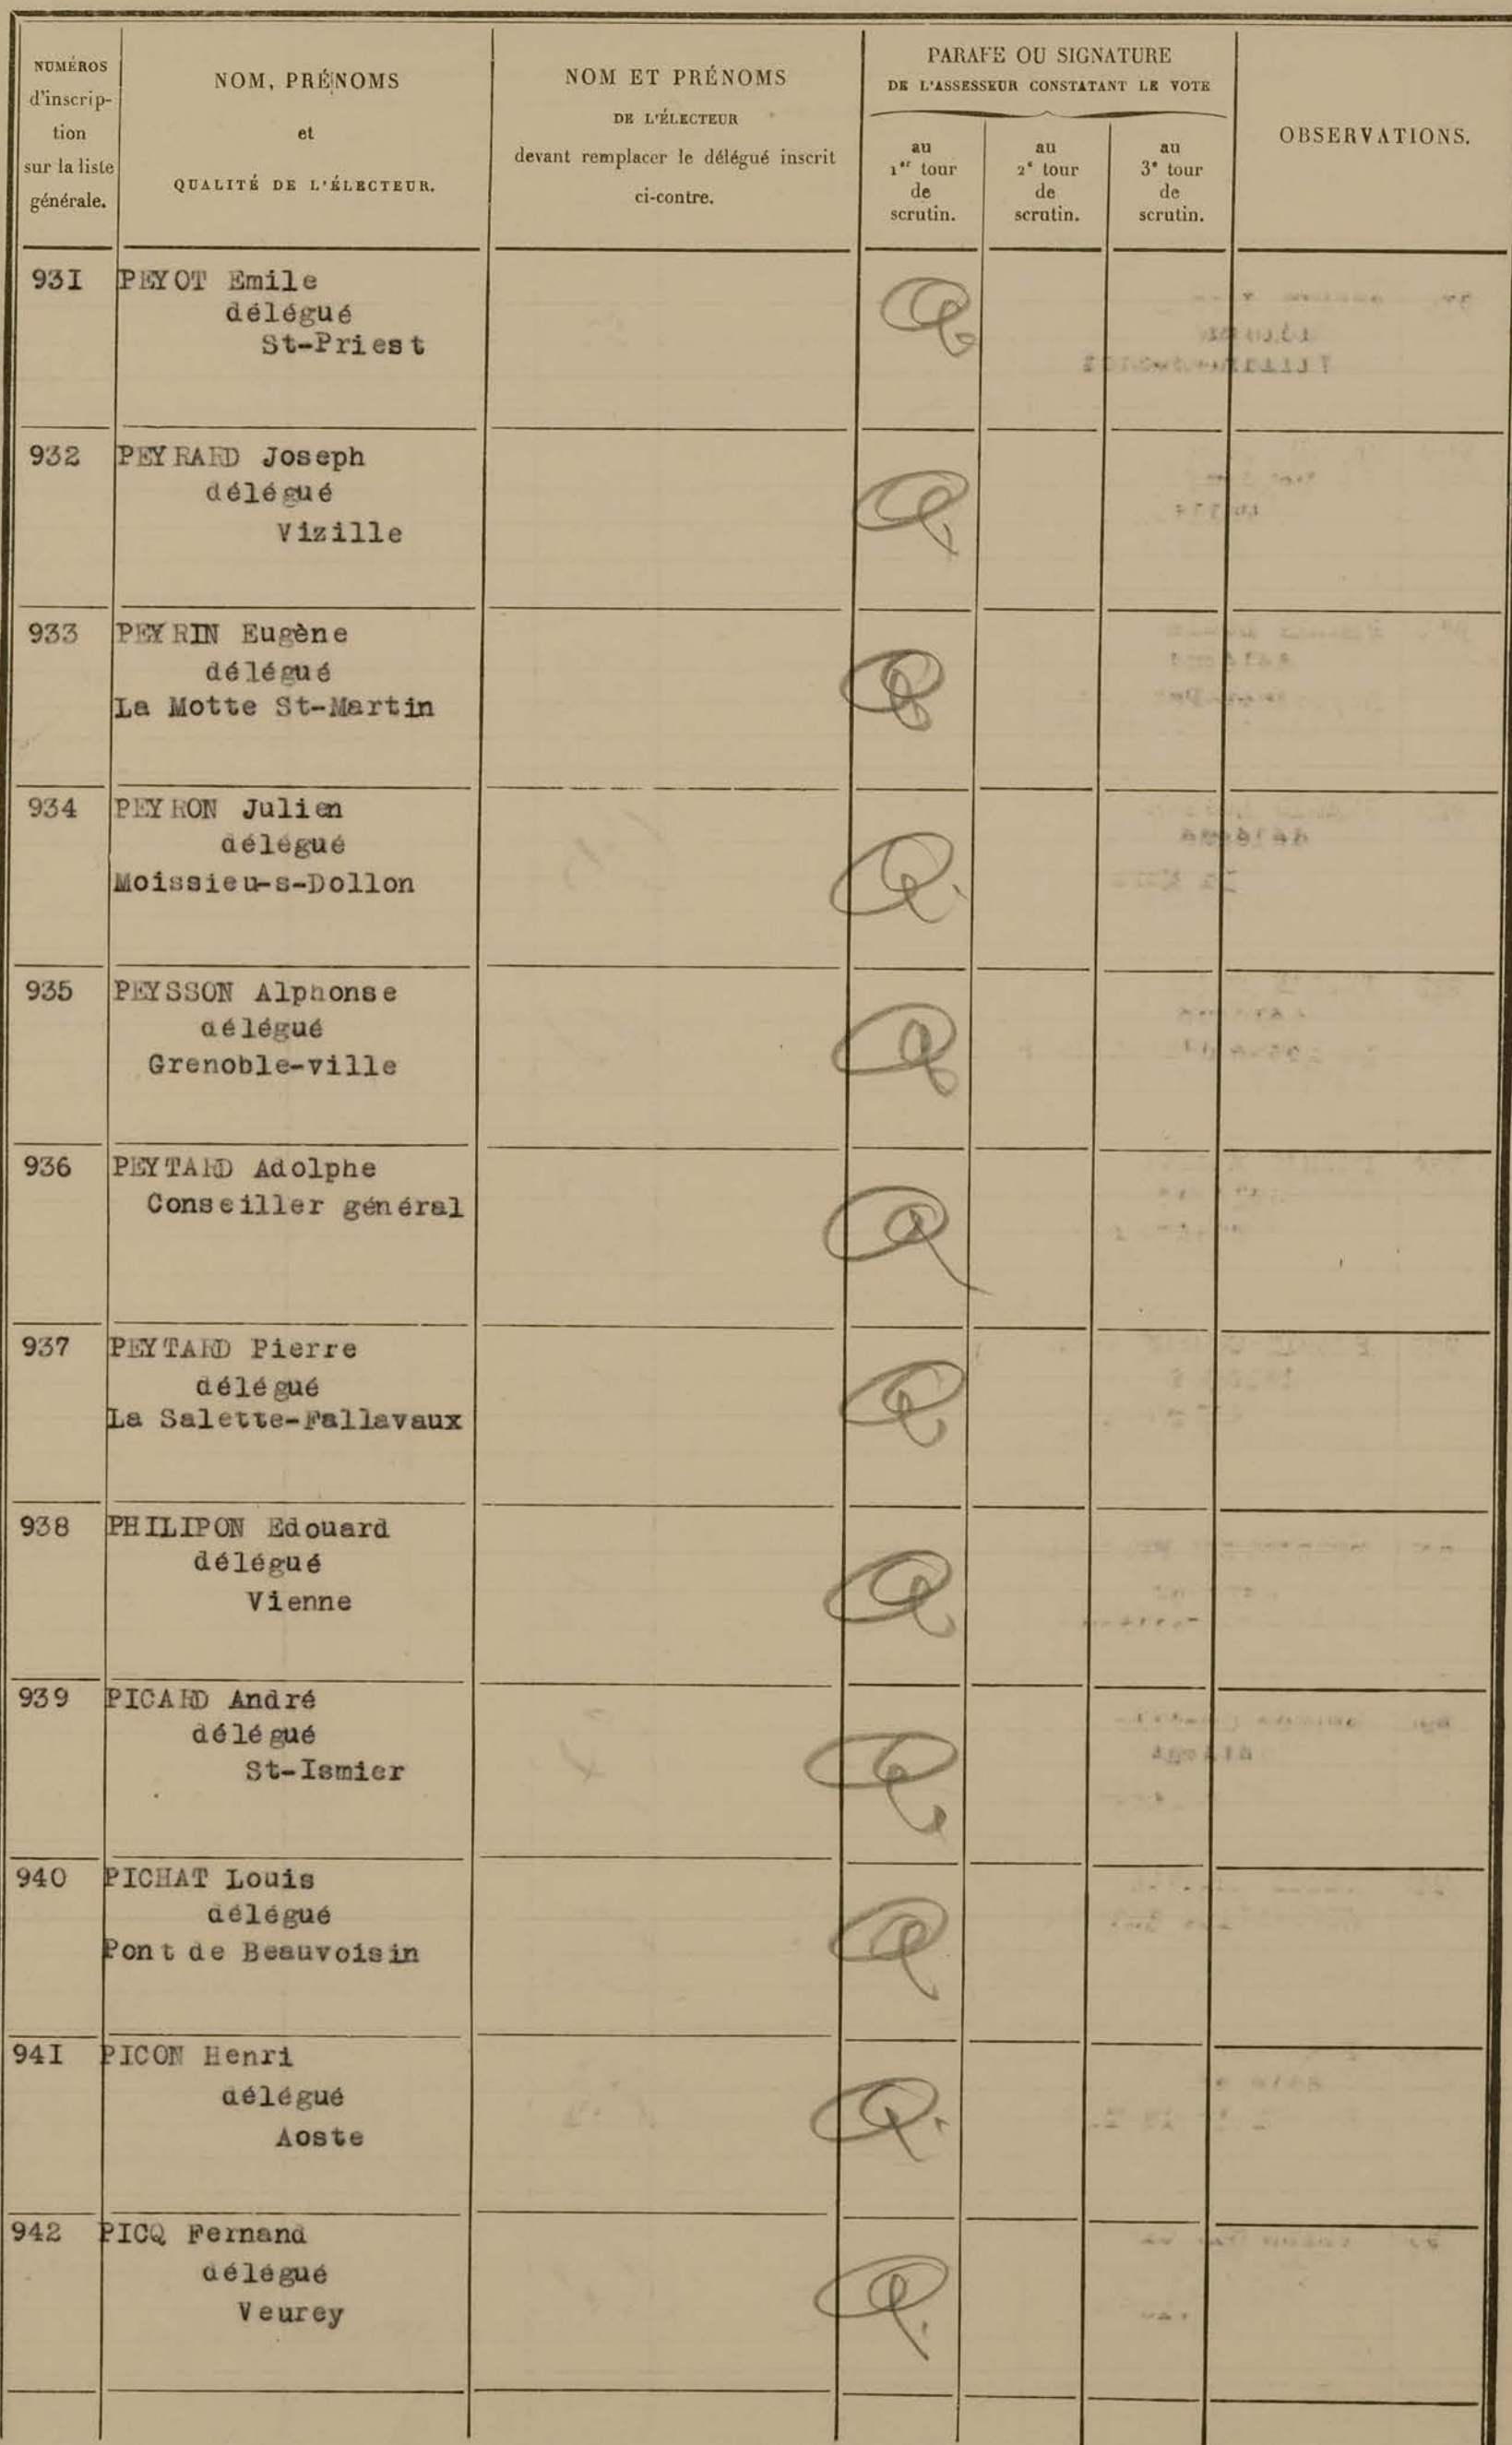 NUMÉROS
d'inscrip-
tion
sur la liste
générale.
NOM, PRÉNOMS
et
QUALITÉ DE L'ÉLECTEUR.
NOM ET PRÉNOMS
DE L'ÉLECTEUR
devant remplacer le délégué inscrit
ci-contre.
PARAFE OU SIGNATURE
DE L'ASSESSEUR CONSTATANT LE VOTE
au
1er tour
de
scrutin.
au
2e tour
de
scrutin.
au
3e tour
de
scrutin.
OBSERVATIONS.
93I PEYOT Emile
délégué
St-Priest
932 PEYRARD Joseph
délégué
Vizille
933 PEYRIN Eugène
délégué
La Motte St-Martin
934 PEYRON Julien
délégué
Moissieu-s-Dollon
935 PEYSSON Alphonse
délégué
Grenoble-ville
936 PEYTARD Adolphe
Conseiller général
937 PEYTARD Pierre
délégué
La Salette-Fallavaux
938 PHILIPON Edouard
délégué
Vienne
939 PICARD André
délégué
St-Ismier
940 PICHAT Louis
délégué
Pont de Beauvoisin
94I PICON Henri
délégué
Aoste
942 PICQ Fernand
délégué
Veurey